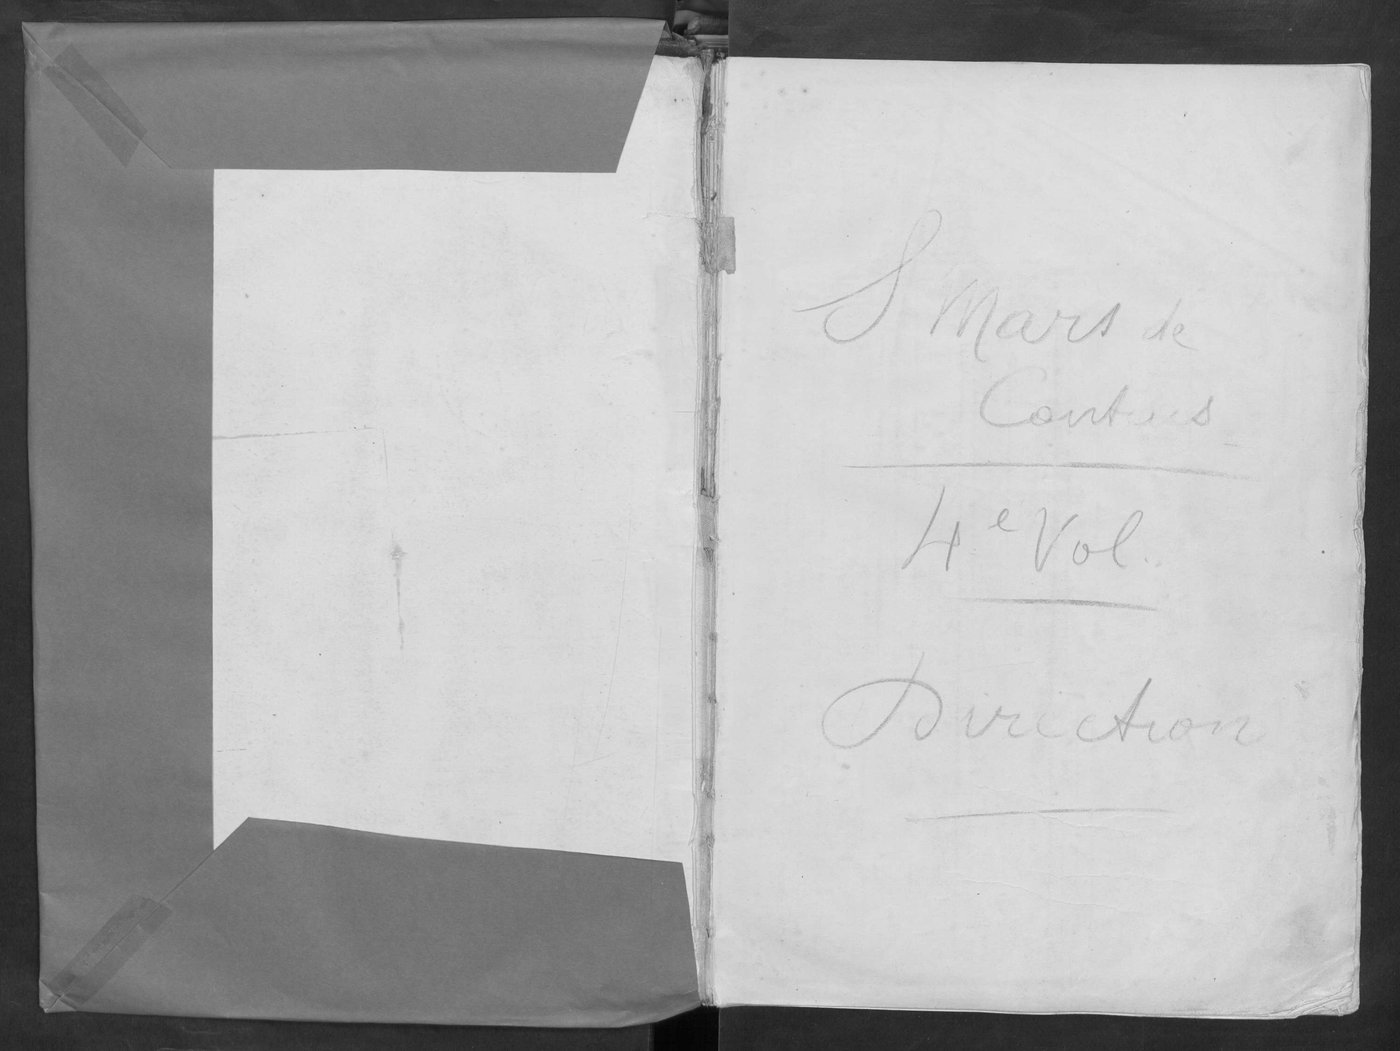 S Mars de
Coutais
4e Vol.
Direction